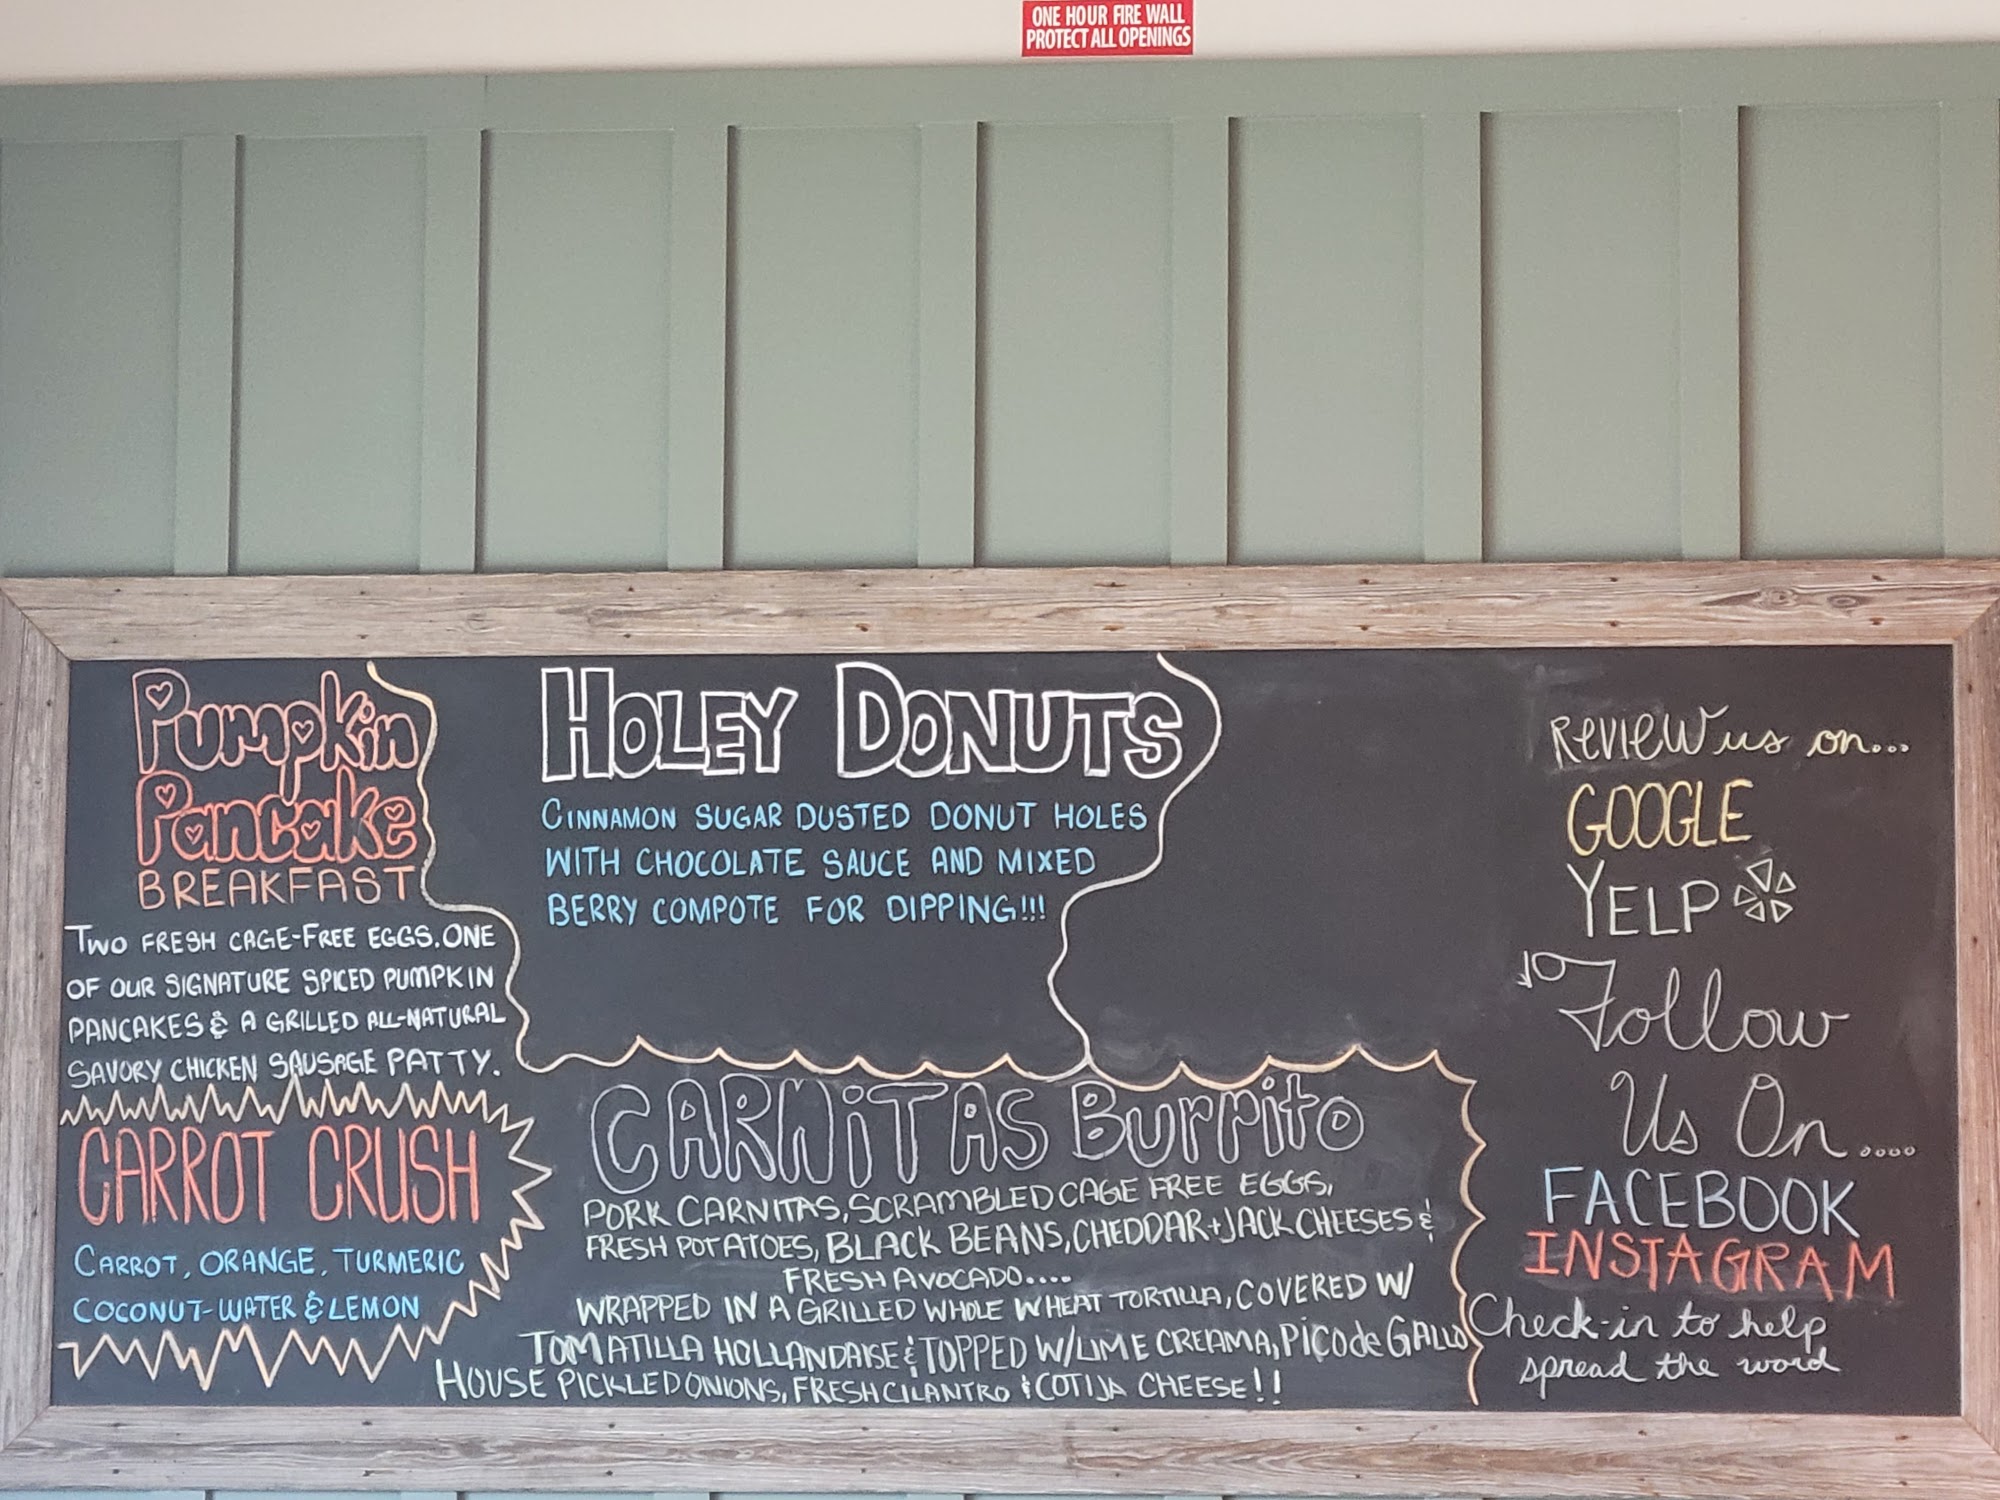 ONE HOUR FIRE WALL
PROTECT ALL OPENINGS
Pumpkin
Pancake
BREAKFAST
TWO FRESH CAGE-FREE EGGS. ONE
OF OUR SIGNATURE SPICED PUMPKIN
PANCAKES & A GRILLED ALL-NATURAL
SAVORY CHICKEN SAUSAGE PATTY.
CARROT CRUSH
CARROT, ORANGE, TURMERIC
COCONUT-WATER & LEMON
HOLEY DONUTS
CINNAMON SUGAR DUSTED DONUT HOLES
WITH CHOCOLATE SAUCE AND MIXED
BERRY COMPOTE FOR DIPPING!!!
CARNiTAS Burrito
PORK CARNITAS, SCRAMBLED CAGE FREE EGGS,
FRESH POTATOES, BLACK BEANS, CHEDDAR + JACK CHEESES &
FRESH AVOCADO....
WRAPPED IN A GRILLED WHOLE WHEAT TORTILLA, COVERED W/
TOMATILLA HOLLANDAISE & TOPPED W/LIME CREAMA, PICO de GALLO
HOUSE PICKLED ONIONS, FRESH CILANTRO & COTIJA CHEESE!!
REVIEW us on...
GOOGLE
YELP
Follow
Us On....
FACEBOOK
INSTAGRAM
Check-in to help
spread the word